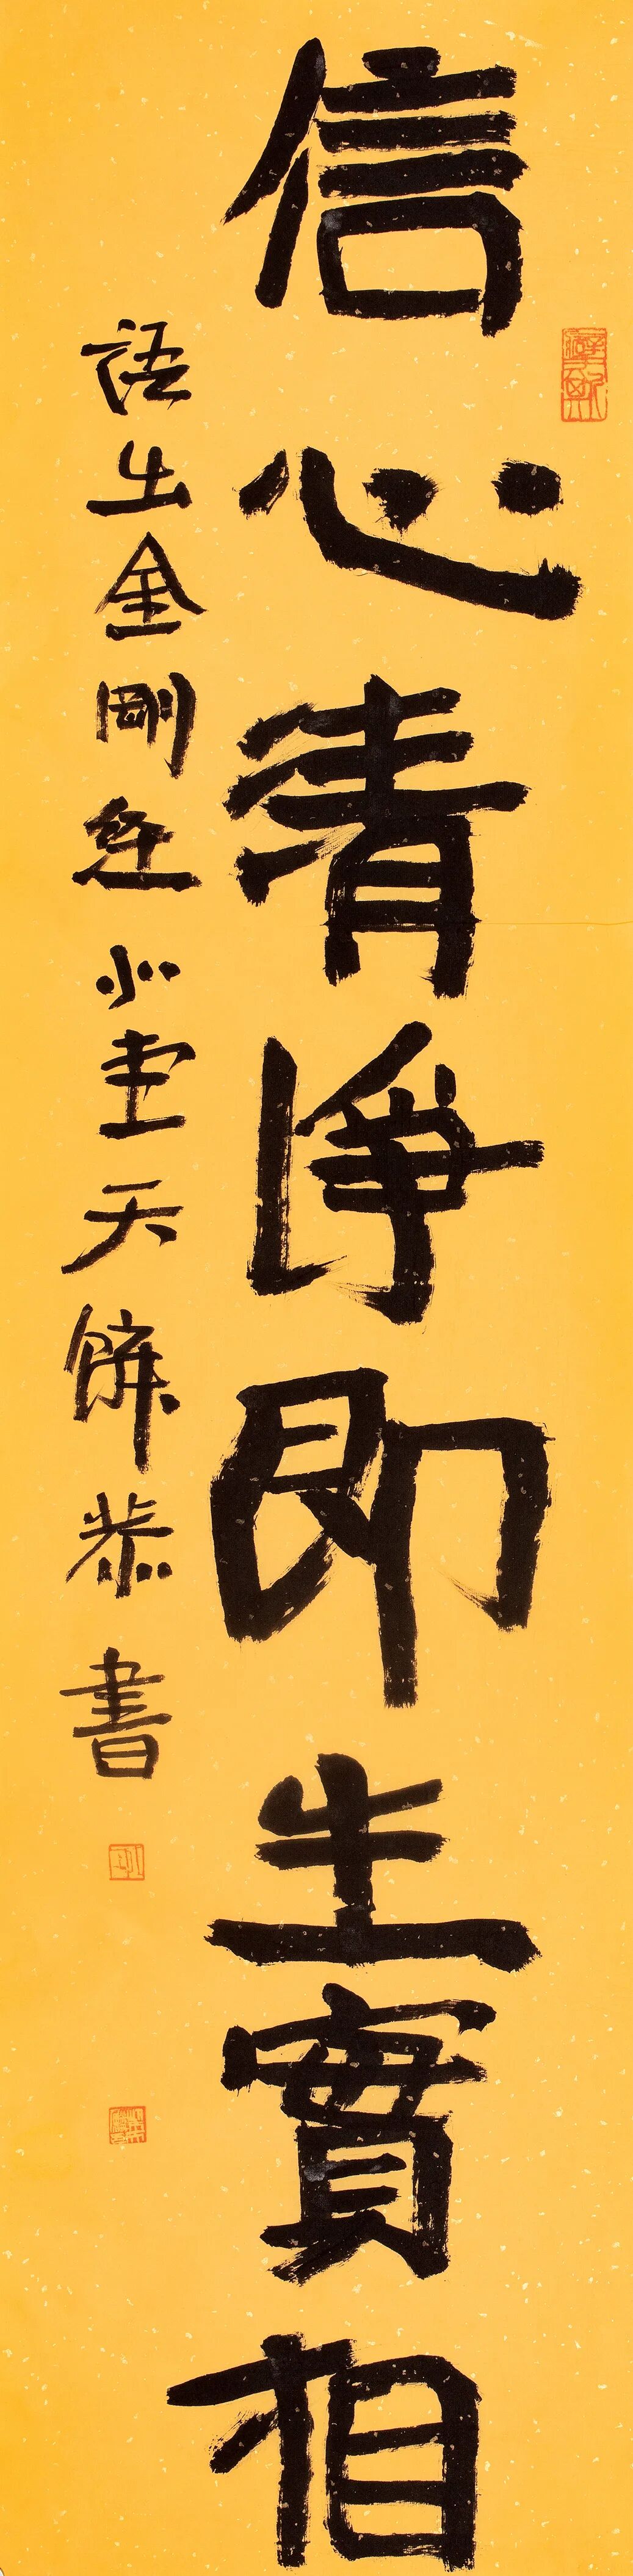 信心清淨即生實相
語出金剛經 小 天 恭書